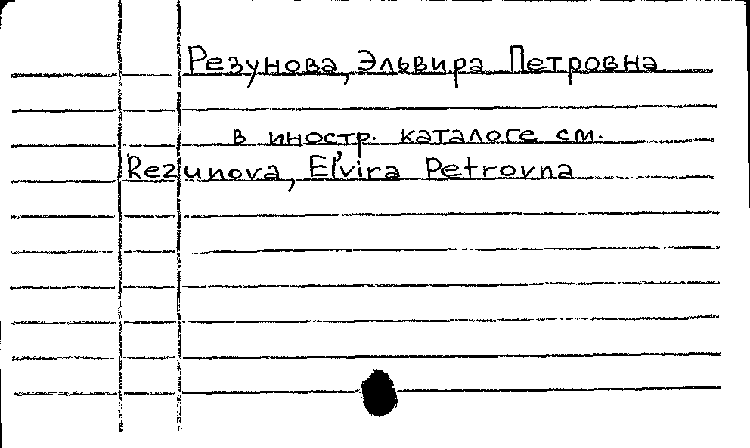 Резунова, Эльвира Петровна
в иностр. каталоге см.
Rezunova, El'vira Petrovna